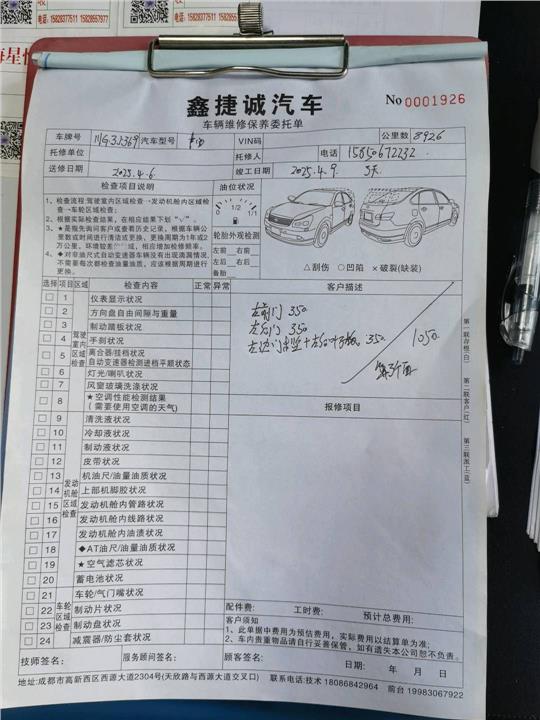 鑫捷诚汽车
No 0001926
车辆维修保养委托单
车牌号 川G31369 汽车型号 VIN码 公里数 8926
托修单位 托修人 电话 15850672232
送修日期 2025.4.6 竣工日期 2025.4.9. 5天
检查项目说明
1、检查流程:驾驶室内区域检查→发动机舱内区域检查→车轮区域检查;
2、根据实际检查结果,在相应结果下划“√”。
3、★是指先询问客户或查看历史记录,根据车辆公里数或时间进行清洁或更换,更换周期为1年或2万公里,环境较差区域,相应增加保修频率。
4、◆对非油尺式自动变速器车辆没有出现滴漏情况,不需要每次都检查油量油质,应该根据周期进行更换。
油位状况
0 1/2 1/1
轮胎外观检测
左前 右前
左后 右后
备胎
△刮伤 ○凹陷 ×破裂(缺装)
选择 项目 区域 检查内容 正常 异常
驾驶室内区域检查
1 仪表显示状况
2 方向盘自由间隙与重量
3 制动踏板状况
4 手刹状况
5 离合器/挂档状况 自动变速器检测进档平顺状态
6 灯光/喇叭状况
7 风窗玻璃洗涤状况
8 ★空调性能检测结果(需要使用空调的天气)
发动机舱区域检查
9 清洗液状况
10 冷却液状况
11 制动液状况
12 皮带状况
13 机油尺/油量油质状况
14 上部机脚胶状况
15 发动机舱内管路状况
16 发动机舱内线路状况
17 发动机舱内油渍状况
18 ◆AT油尺/油量油质状况
19 ★空气滤芯状况
20 蓄电池状况
车轮区域检查
21 车轮/气门嘴状况
22 制动片状况
23 制动盘状况
24 减震器/防尘套状况
客户描述
左前门 350
左后门 350
350
1050
报修项目
第一联存根(白)
第二联客户(红)
第三联派工(蓝)
配件费: 工时费: 预计总费用:
客户须知
1、此单据中费用为预估费用,实际费用以结算单为准;
2、车内贵重物品请自行妥善保管,如有遗失本公司恕不负责。
技师签名: 服务顾问签名: 顾客签名: 日期: 年 月 日
地址:成都市高新西区西源大道2304号(天欣路与西源大道交叉口) 联系电话:技术 18086842964 前台 19983067922